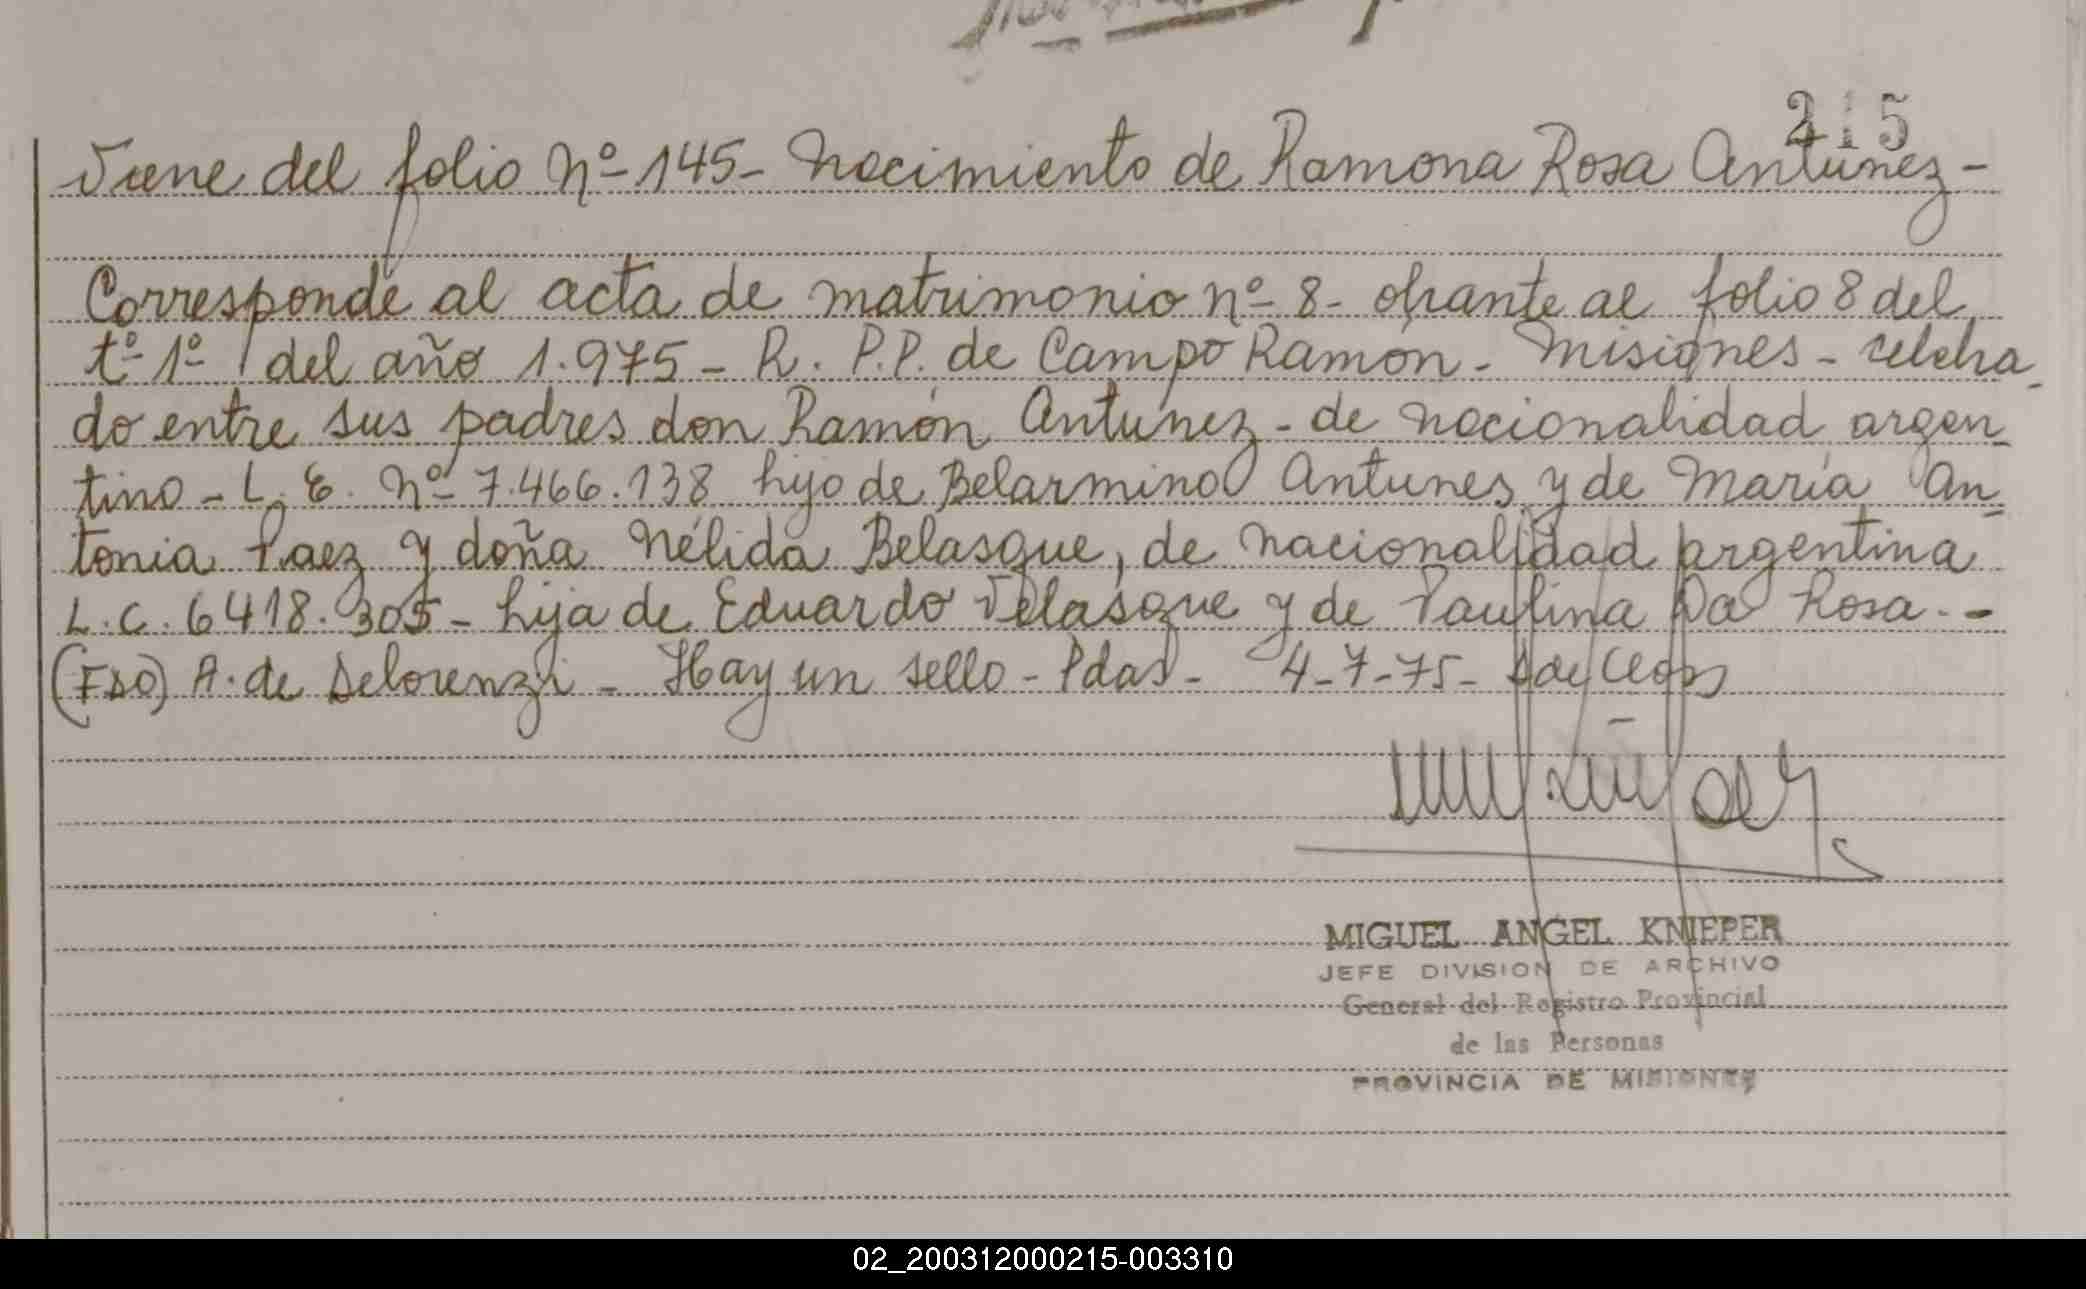 215
Viene del folio Nº 145 - Nacimiento de Ramona Rosa Antunez -
Corresponde al acta de matrimonio nº 8 - obrante al folio 8 del
tº 1º del año 1.975 - R. P.P. de Campo Ramón - Misiones - celebra
do entre sus padres don Ramón Antunez - de nacionalidad argen
tino - L. E. Nº 7.466.138 hijo de Belarmino Antunes y de María An
tonia Paez y doña Nélida Belasque, de nacionalidad argentina
L.C. 6418.305 - hija de Eduardo Velasque y de Paulina Da Rosa. -
(FDO) A. de Delorenzi - Hay un sello - Pdas - 4-7-75 -
MIGUEL ANGEL KNIEPER
JEFE DIVISION DE ARCHIVO
General del Registro Provincial
de las Personas
PROVINCIA DE MISIONES
02_200312000215-003310